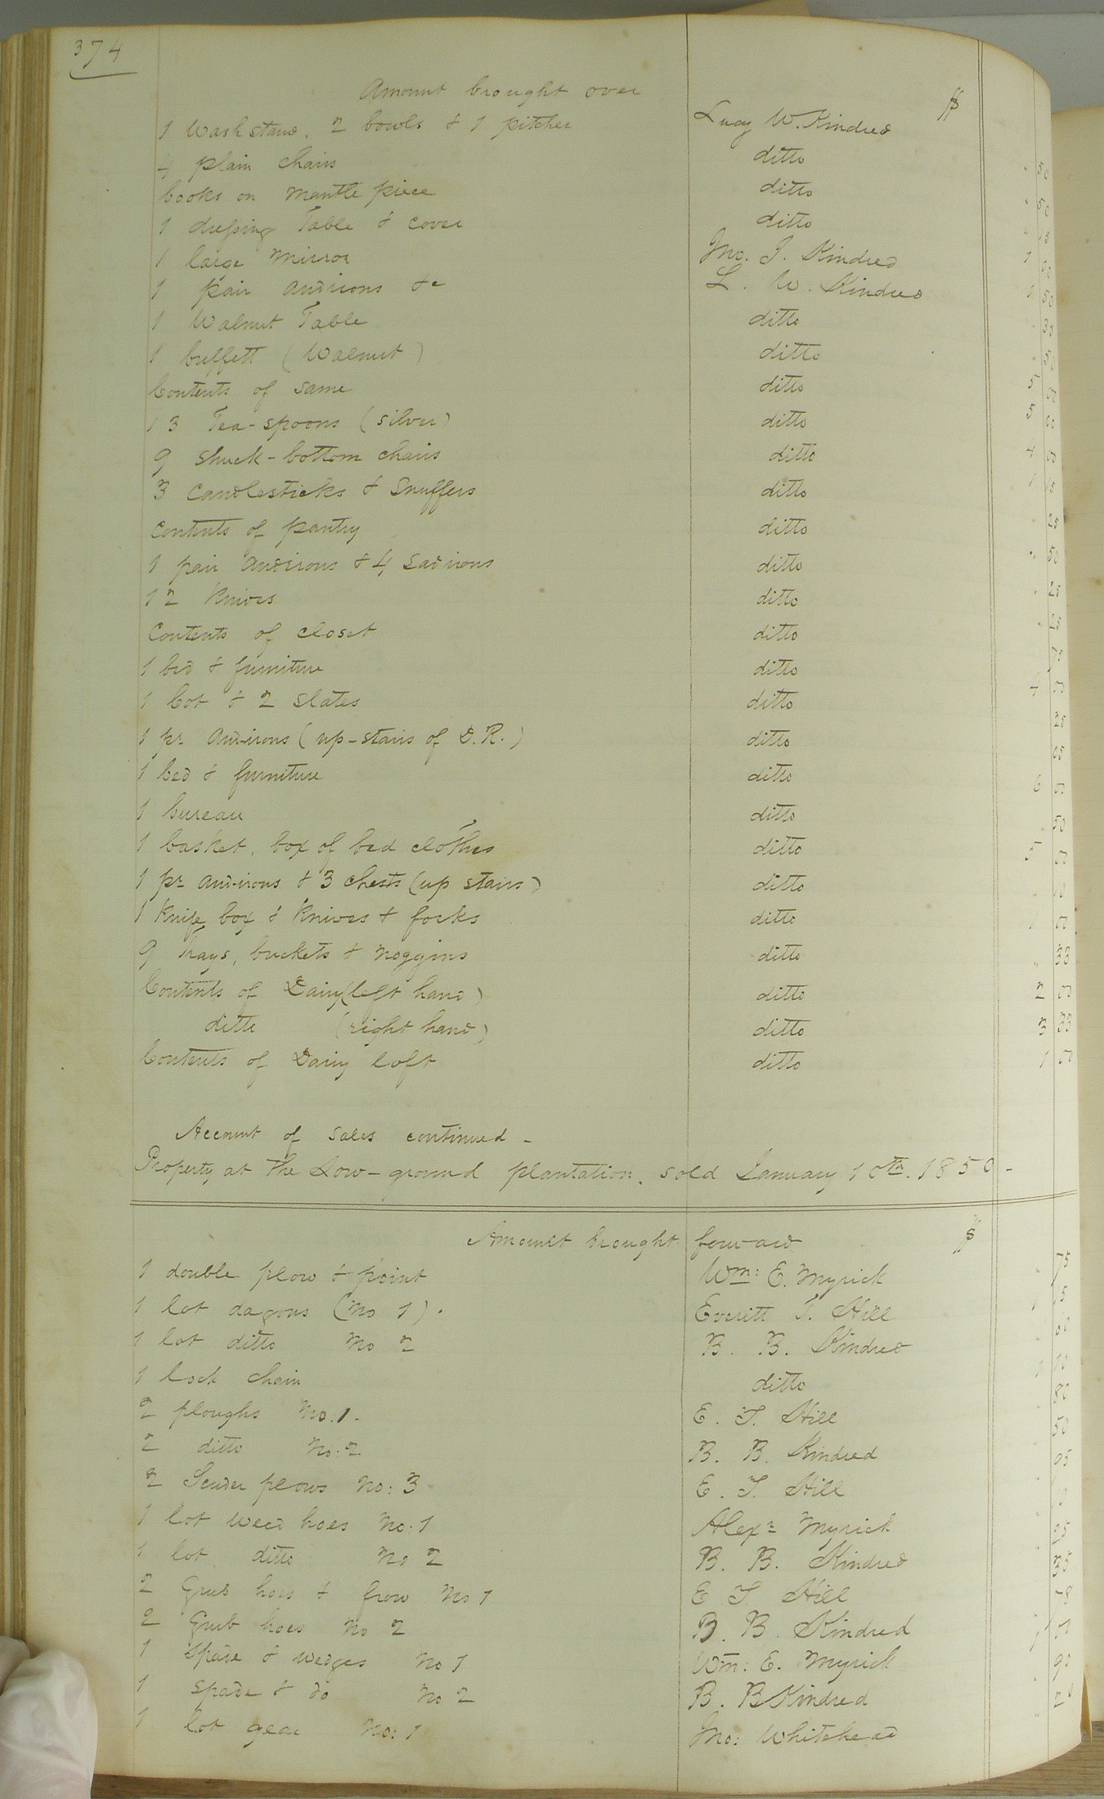 374
Amount brought over $
1 Wash stand, 2 bowls & 1 pitcher Lucy W. Kindred
4 plain chairs ditto 50
books on mantle piece ditto 50
1 dressing Table & cover ditto
1 large mirror Jno. J. Kindred
1 pair andirons &c L. W. Kindred 50
1 Walnut Table ditto
1 buffett (Walnut) ditto
Contents of same ditto 5
13 Tea-spoons (silver) ditto 5
9 shuck-bottom chairs ditto 4
3 Candlesticks & Snuffers ditto
Contents of pantry ditto 25
1 pair andirons & 4 sadirons ditto 50
12 knives ditto 25
Contents of closet ditto 25
1 bed & furniture ditto 75
1 Cot & 2 slates ditto 4
1 pr andirons (up-stairs of D.R.) ditto 25
1 bed & furniture ditto 6
1 bureau ditto 50
1 basket, box of bed clothes ditto 5
1 pr andirons & 3 chests (up stairs) ditto
1 knife box & knives & forks ditto
9 trays, buckets & noggins ditto 33
Contents of Dairy (left hand) ditto 2
ditto (right hand) ditto 3 33
Contents of Dairy loft ditto 1
Account of sales continued -
Property at the Low-ground plantation, sold January 10th. 1850 -
Amount brought forward $
1 double plow & point Wm: E. Myrick 75
1 lot dagons (No 1). Everitt T. Hill
1 lot ditto No 2 B. B. Kindred
1 lock chain ditto
2 ploughs No. 1. E. T. Hill 50
2 ditto No: 2 B. B. Kindred
2 plows No: 3 E. T. Hill
1 lot weed hoes No: 1 Alexr Myrick
1 lot ditto No 2 B. B. Kindred 35
2 Grub hoes & frow No 1 E T Hill
2 Grub hoes No 2 B. B. Kindred
1 spade & wedges No 1 Wm: E. Myrick 90
1 spade & do No 2 B. B Kindred
1 lot gear No: 1 Jno: Whitehead